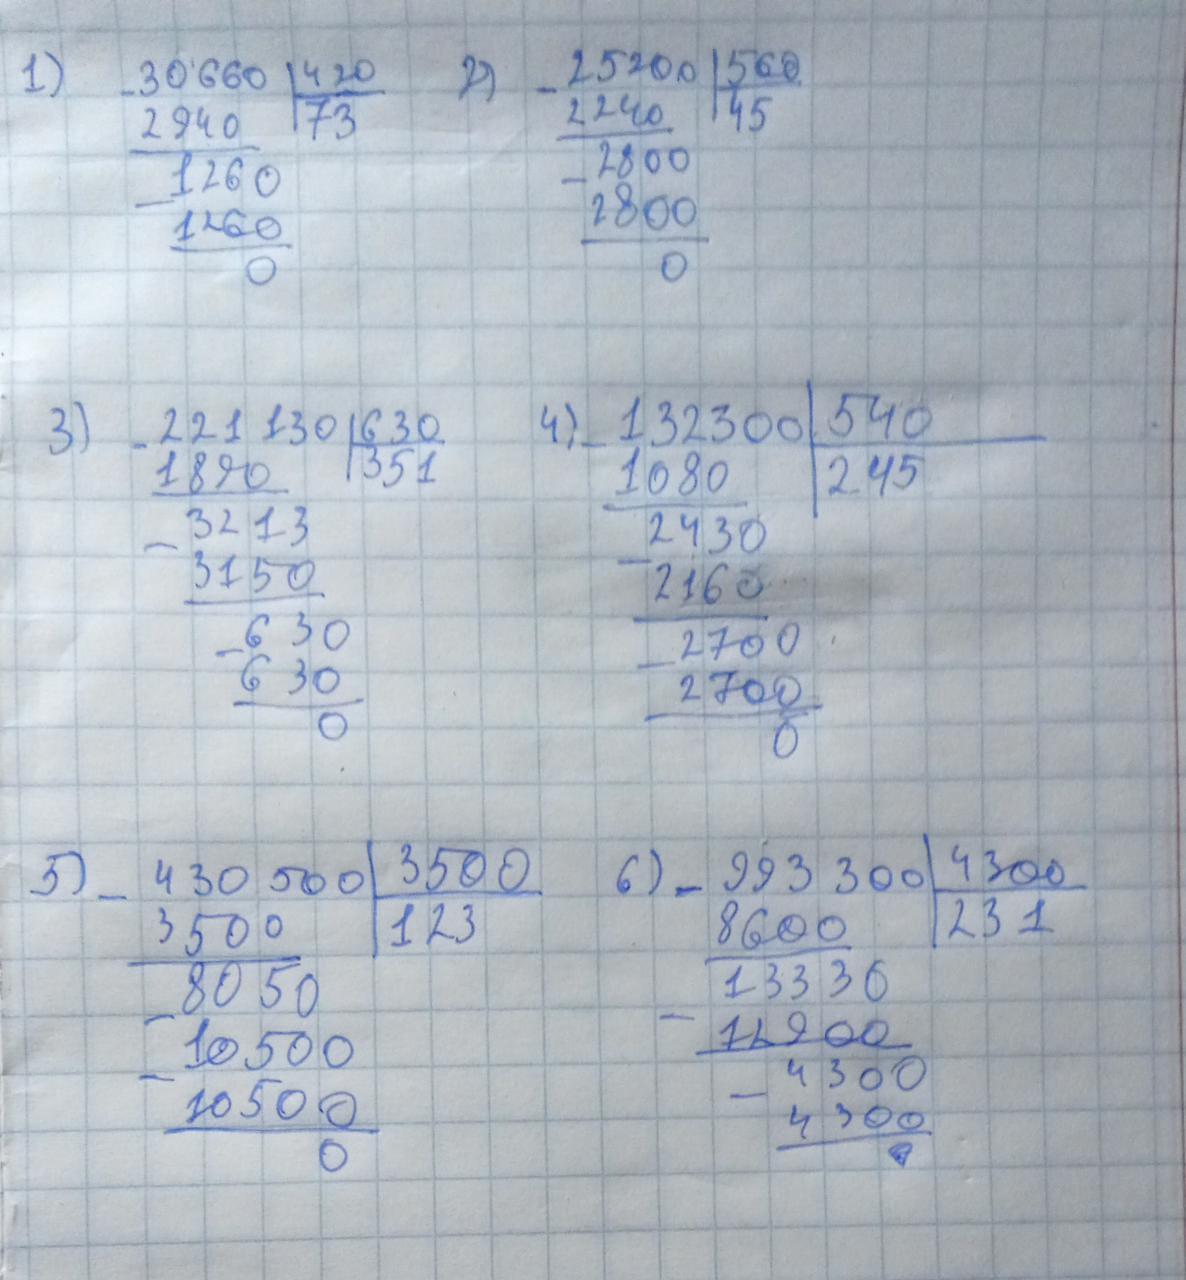 1) -30660 | 420
2940 | 73
-1260
1260
0
2) -25200 | 560
2240 | 45
-2800
2800
0
3) -221130 | 630
1890 | 351
-3213
3150
-630
630
0
4) -132300 | 540
1080 | 245
-2430
2160
-2700
2700
0
5) -430500 | 3500
3500 | 123
-8050
-10500
10500
0
6) -993300 | 4300
8600 | 231
-13330
12900
-4300
4300
0